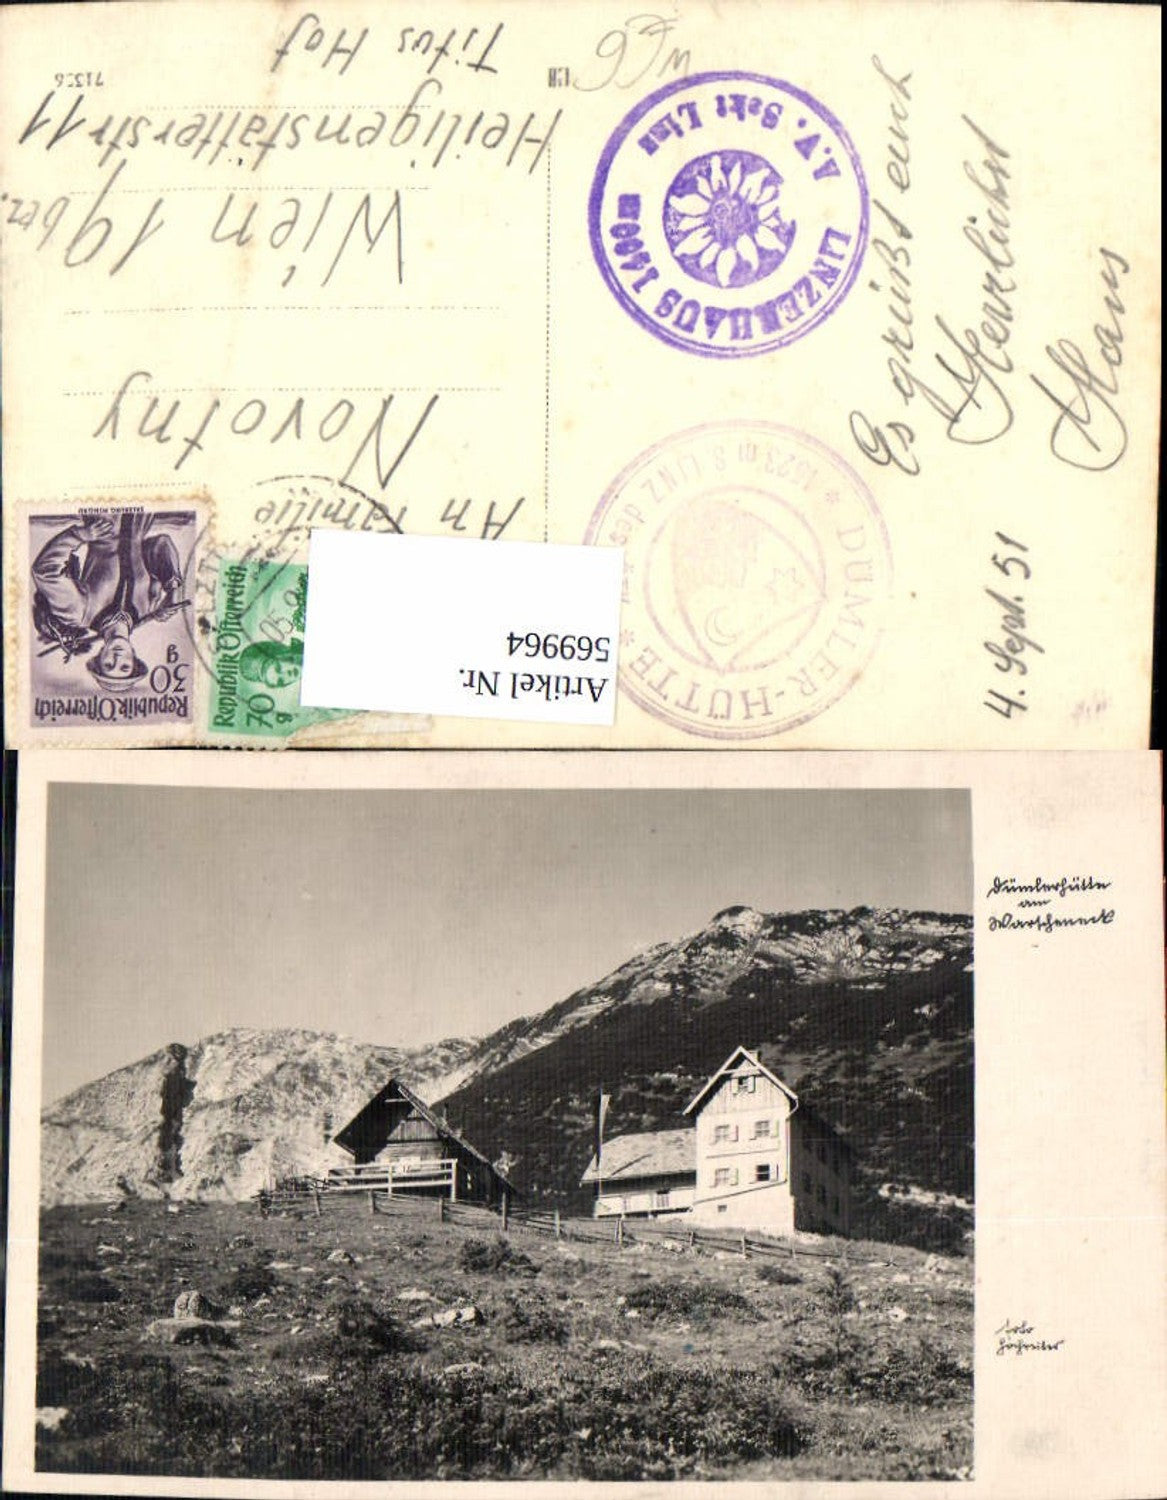 An Familie
Novotny
Wien 19 bez.
Heiligenstätterstr 11
Titus Hof
71556
Republik Österreich
30
g
SALZBURG PINZGAU
Republik Österreich
70
g
Artikel Nr.
569964
LINZERHAUS 1400m
A.V. Sekt Linz
DÜMLER-HÜTTE
* 1523 m S. LINZ des
4. Sept. 51
Es grüßt euch
Herzlichst
Hans
Dümlerhütte
am
Warscheneck
Foto
Hochreiter